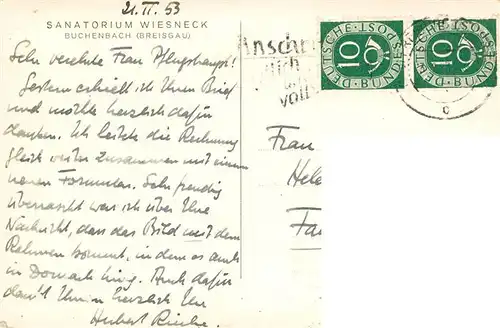 21. II. 53
SANATORIUM WIESNECK
BUCHENBACH (BREISGAU)
Sehr verehrte Frau Pflugshaupt!
Gestern erhielt ich Ihren Brief
und möchte herzlich dafür
danken. Ich leitete die Rechnung
gleich weiter zusammen mit einem
neuen Formular. Sehr freudig
überrascht war ich über Ihre
Nachricht, dass das Bild mit dem
Rahmen kommt, in dem es auch
in Dornach hing. Auch dafür
dankt Ihnen herzlich Ihr
Hubert
Anschri
voll
DEUTSCHE BUNDESPOST
10
DEUTSCHE BUNDESPOST
10
c
Frau
Hele
Fa